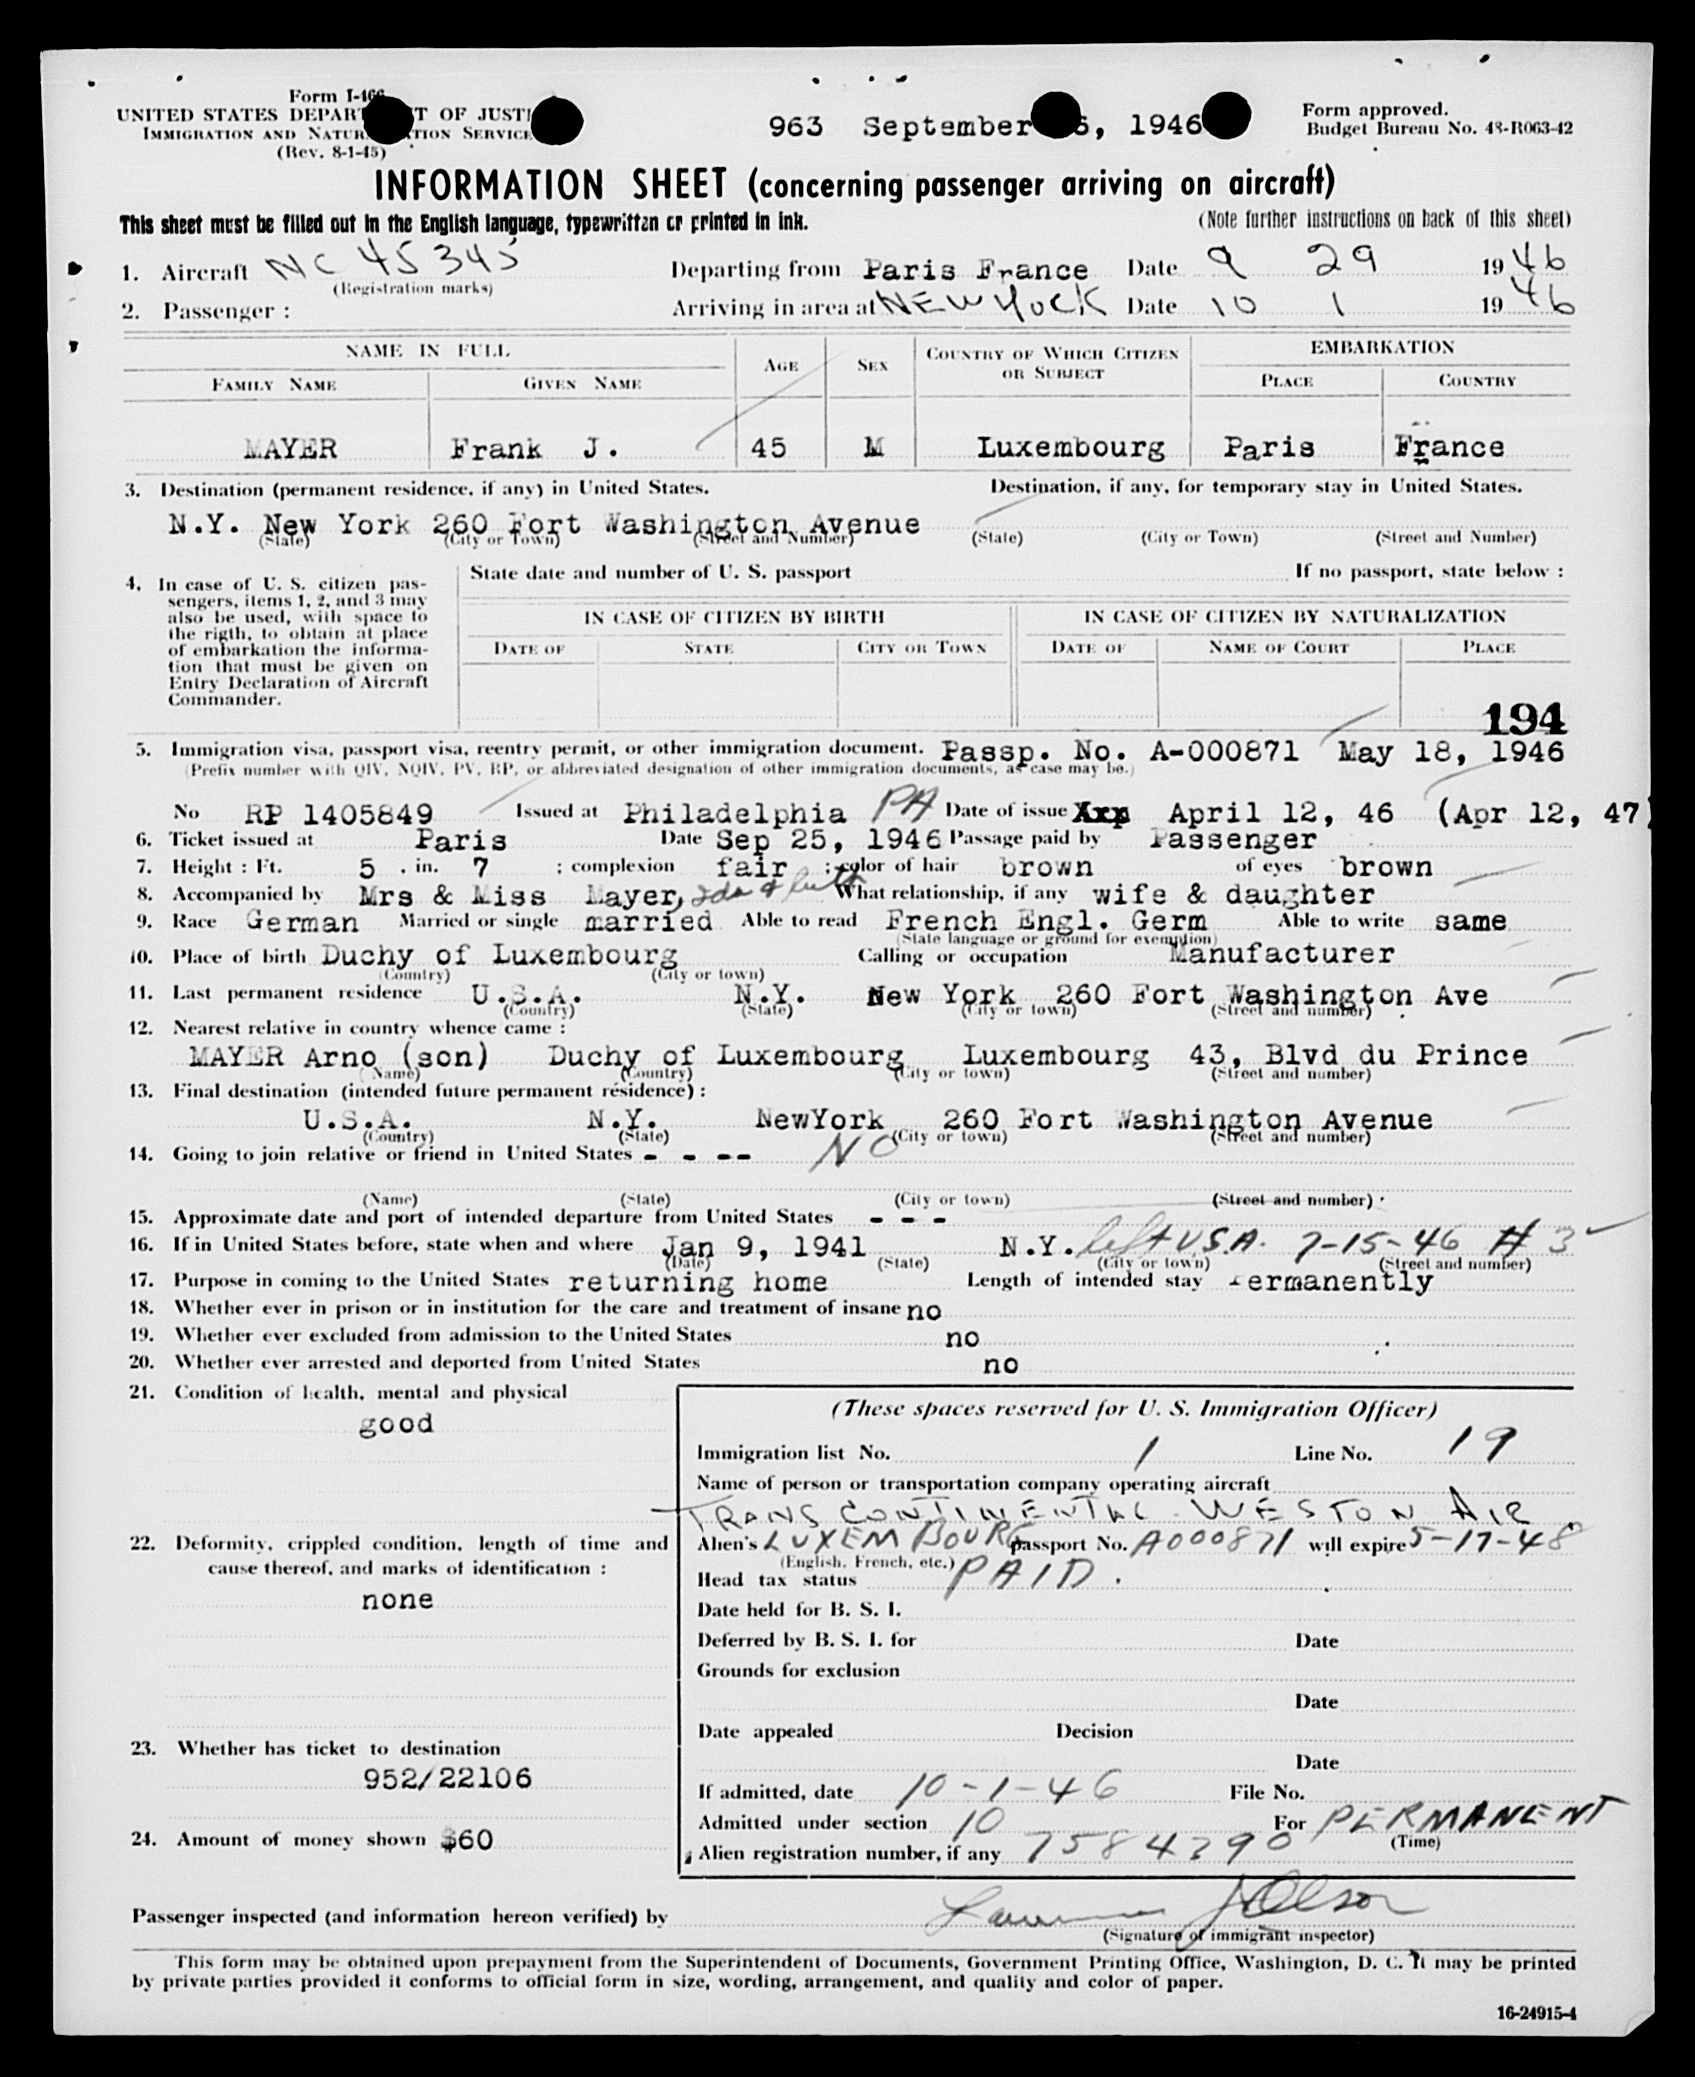 Form I-466
UNITED STATES DEPART T OF JUSTI
IMMIGRATION AND NATUR TION SERVICE
(Rev. 8-1-45)
963 September 6, 1946
Form approved.
Budget Bureau No. 43-R063-42
INFORMATION SHEET (concerning passenger arriving on aircraft)
This sheet must be filled out in the English language, typewritten or printed in ink.
(Note further instructions on back of this sheet)
1. Aircraft NC 45345 Departing from Paris France Date 9 29 1946
(Registration marks)
2. Passenger : Arriving in area at NEW YOCK Date 10 1 1946
NAME IN FULL AGE SEX COUNTRY OF WHICH CITIZEN OR SUBJECT EMBARKATION
FAMILY NAME GIVEN NAME PLACE COUNTRY
MAYER Frank J. 45 M Luxembourg Paris France
3. Destination (permanent residence, if any) in United States. Destination, if any, for temporary stay in United States.
N.Y. New York 260 Fort Washington Avenue
(State) (City or Town) (Street and Number) (State) (City or Town) (Street and Number)
4. In case of U. S. citizen pas-
sengers, items 1, 2, and 3 may
also be used, with space to
the rigth, to obtain at place
of embarkation the informa-
tion that must be given on
Entry Declaration of Aircraft
Commander.
State date and number of U. S. passport If no passport, state below :
IN CASE OF CITIZEN BY BIRTH IN CASE OF CITIZEN BY NATURALIZATION
DATE OF STATE CITY OR TOWN DATE OF NAME OF COURT PLACE
194
5. Immigration visa, passport visa, reentry permit, or other immigration document. Passp. No. A-000871 May 18, 1946
(Prefix number with QIV, NQIV, PV, RP, or abbreviated designation of other immigration documents, as case may be.)
No RP 1405849 Issued at Philadelphia PA Date of issue April 12, 46 (Apr 12, 47)
6. Ticket issued at Paris Date Sep 25, 1946 Passage paid by Passenger
7. Height : Ft. 5 . in. 7 ; complexion fair ; color of hair brown of eyes brown
8. Accompanied by Mrs & Miss Mayer, Ida & Ruth What relationship, if any wife & daughter
9. Race German Married or single married Able to read French Engl. Germ Able to write same
(State language or ground for exemption)
10. Place of birth Duchy of Luxembourg Calling or occupation Manufacturer
(Country) (City or town)
11. Last permanent residence U.S.A. N.Y. New York 260 Fort Washington Ave
(Country) (State) (City or town) (Street and number)
12. Nearest relative in country whence came :
MAYER Arno (son) Duchy of Luxembourg Luxembourg 43, Blvd du Prince
(Name) (Country) (City or town) (Street and number)
13. Final destination (intended future permanent résidence) :
U.S.A. N.Y. NewYork 260 Fort Washington Avenue
(Country) (State) (City or town) (Street and number)
14. Going to join relative or friend in United States - - -- NO
(Name) (State) (City or town) (Street and number)
15. Approximate date and port of intended departure from United States - - -
16. If in United States before, state when and where Jan 9, 1941 N.Y. left U.S.A. 7-15-46 H 3
(Date) (State) (City or town) (Street and number)
17. Purpose in coming to the United States returning home Length of intended stay ermanently
18. Whether ever in prison or in institution for the care and treatment of insane no
19. Whether ever excluded from admission to the United States no
20. Whether ever arrested and deported from United States no
21. Condition of health, mental and physical
good
22. Deformity, crippled condition, length of time and
cause thereof, and marks of identification :
none
23. Whether has ticket to destination
952/22106
24. Amount of money shown $60
(These spaces reserved for U. S. Immigration Officer)
Immigration list No. 1 Line No. 19
Name of person or transportation company operating aircraft
TRANS CONTINENTAL WESTON AIR
Alien's LUXEMBOURG passport No. A000871 will expire 5-17-48
(English, French, etc.)
Head tax status PAID.
Date held for B. S. I.
Deferred by B. S. I. for Date
Grounds for exclusion
Date
Date appealed Decision
Date
If admitted, date 10-1-46 File No.
Admitted under section 10 For PERMANENT
(Time)
Alien registration number, if any 7584290
Passenger inspected (and information hereon verified) by
(Signature of immigrant inspector)
This form may be obtained upon prepayment from the Superintendent of Documents, Government Printing Office, Washington, D. C. It may be printed
by private parties provided it conforms to official form in size, wording, arrangement, and quality and color of paper.
16-24915-4